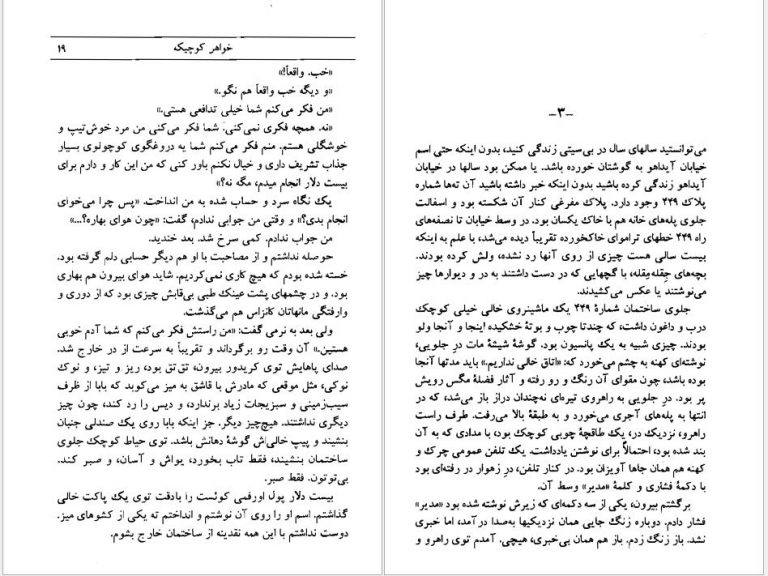 خواهر کوچیکه ۱۹
«خب. واقعاً!»
«و دیگه خب واقعاً هم نگو.»
«من فکر می‌کنم شما خیلی تدافعی هستی.»
«نه. همچه فکری نمی‌کنی. شما فکر می‌کنی من مرد خوش‌تیپ و
خوشگلی هستم. منم فکر می‌کنم شما یه دروغگوی کوچولوی بسیار
جذاب تشریف داری و خیال نکنم باور کنی که من این کار و دارم برای
بیست دلار انجام میدم، مگه نه؟»
یک نگاه سرد و حساب شده به من انداخت. «پس چرا می‌خوای
انجام بدی؟» و وقتی من جوابی ندادم، گفت: «چون هوای بهاره؟...»
من جواب ندادم. کمی سرخ شد. بعد خندید.
حوصله نداشتم و از مصاحبت با او هم دیگر حسابی دلم گرفته بود.
خسته شده بودم که هیچ کاری نمی‌کردیم. شاید هوای بیرون هم بهاری
بود. و در چشمهای پشت عینک طبی بی‌قابش چیزی بود که از دوری و
وارفتگی مانهاتان کانزاس هم می‌گذشت.
ولی بعد به نرمی گفت: «من راستش فکر می‌کنم که شما آدم خوبی
هستین.» آن وقت رو برگرداند و تقریباً به سرعت از در خارج شد.
صدای پاهایش توی کریدور بیرون، تق‌تق بود، ریز و تیز، و نوک
نوکی، مثل موقعی که مادرش با قاشق به میز می‌کوبد که بابا از ظرف
سیب‌زمینی و سبزیجات زیاد برندارد، و دیس را رد کند، چون چیز
دیگری نداشتند. هیچ‌چیز دیگر. جز اینکه بابا روی یک صندلی جنبان
بنشیند و پیپ خالی‌اش گوشهٔ دهانش باشد. توی حیاط کوچک جلوی
ساختمان بنشیند، فقط تاب بخورد، یواش و آسان، و صبر کند.
بی‌توتون. فقط صبر.
بیست دلار پول اورفمی کوئست را بادقت توی یک پاکت خالی
گذاشتم. اسم او را روی آن نوشتم و انداختم ته یکی از کشوهای میز.
دوست نداشتم با این همه نقدینه از ساختمان خارج بشوم.
–۳–
می‌توانستید سالهای سال در بی‌سیتی زندگی کنید، بدون اینکه حتی اسم
خیابان آیداهو به گوشتان خورده باشد. یا ممکن بود سالها در خیابان
آیداهو زندگی کرده باشید بدون اینکه خبر داشته باشید آن ته‌ها شماره
پلاک ۴۴۹ وجود دارد. پلاک مفرغی کنار آن شکسته بود و اسفالت
جلوی پله‌های خانه هم با خاک یکسان بود. در وسط خیابان تا نصفه‌های
راه ۴۴۹ خطهای تراموای خاک‌خورده تقریباً دیده می‌شد، با علم به اینکه
بیست سالی هست چیزی از روی آنها رد نشده، ولش کرده بودند.
بچه‌های جِقله‌مِقله، با گچهایی که در دست داشتند به در و دیوارها چیز
می‌نوشتند یا عکس می‌کشیدند.
جلوی ساختمان شمارهٔ ۴۴۹ یک ماشین‌روی خالی خیلی کوچک
درب و داغون داشت، که چندتا چوب و بوتهٔ خشکیده اینجا و آنجا ولو
بودند. چیزی شبیه به یک پانسیون بود. گوشهٔ شیشهٔ مات درِ جلویی،
نوشته‌ای کهنه به چشم می‌خورد که: «اتاق خالی نداریم.» باید مدتها آنجا
بوده باشد، چون مقوای آن رنگ و رو رفته و آثار فضلهٔ مگس رویش
پر بود. درِ جلویی به راهروی تیره‌ای نه‌چندان دراز باز می‌شد، که در
انتها به پله‌های آجری می‌خورد و به طبقهٔ بالا می‌رفت. طرف راست
راهرو، نزدیک در، یک طاقچهٔ چوبی کوچک بود، با مدادی که به آن
بند شده بود، احتمالاً برای نوشتن یادداشت. یک تلفن عمومی چرک و
کهنه هم همان جاها آویزان بود. در کنار تلفن، درِ زهوار در رفته‌ای بود
با دکمهٔ فشاری و کلمهٔ «مدیر» وسط آن.
برگشتم بیرون، یکی از سه دکمه‌ای که زیرش نوشته شده بود «مدیر»
فشار دادم. دوباره زنگ جایی همان نزدیکیها به‌صدا درآمد، اما خبری
نشد. باز زنگ زدم. باز هم همان بی‌خبری، هیچی. آمدم توی راهرو و